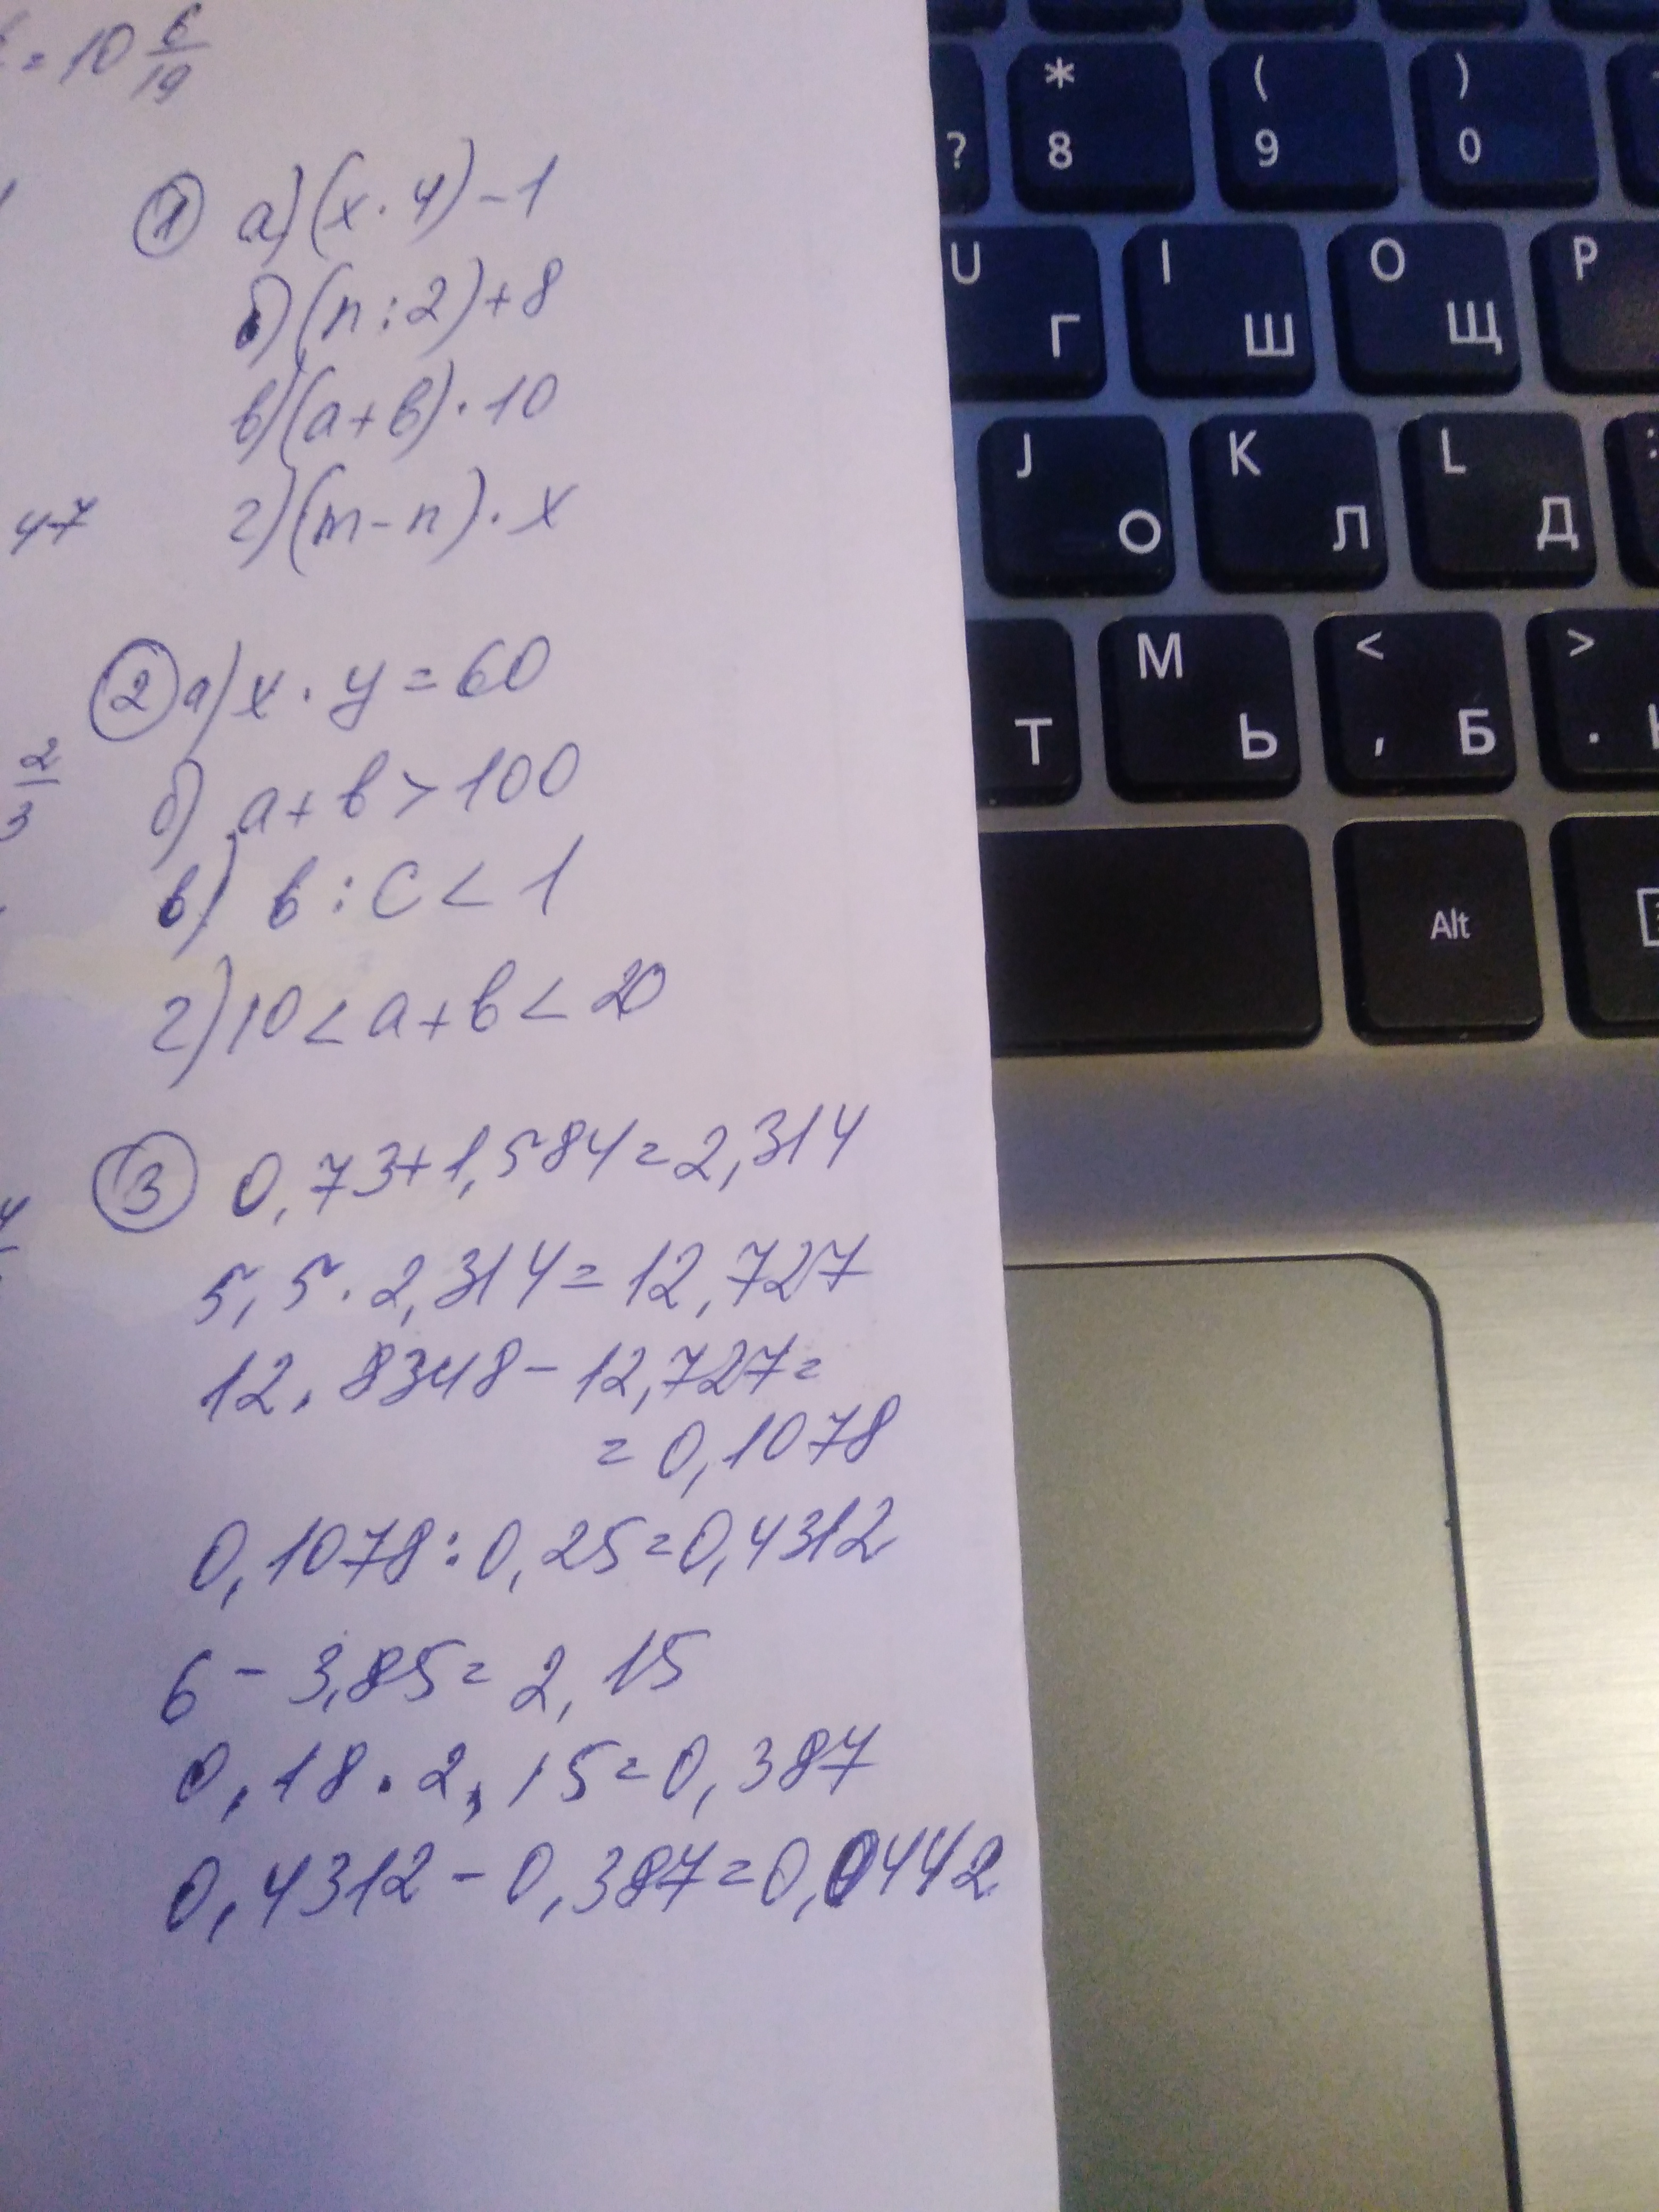 = 10 6/19
① а) (x · 4) - 1
б) (n : 2) + 8
в) (a + b) · 10
г) (m - n) · x
47
② а) x · y = 60
2/3
б) a + b > 100
в) b : c < 1
г) 10 < a + b < 20
③ 0,73 + 1,584 = 2,314
5,5 · 2,314 = 12,727
12,8348 - 12,727 =
= 0,1078
0,1078 : 0,25 = 0,4312
6 - 3,85 = 2,15
0,18 · 2,15 = 0,387
0,4312 - 0,387 = 0,0442
?
* 8
( 9
) 0
U Г
I Ш
O Щ
P
J О
K Л
L Д
Т
M Ь
< , Б
> .
Alt